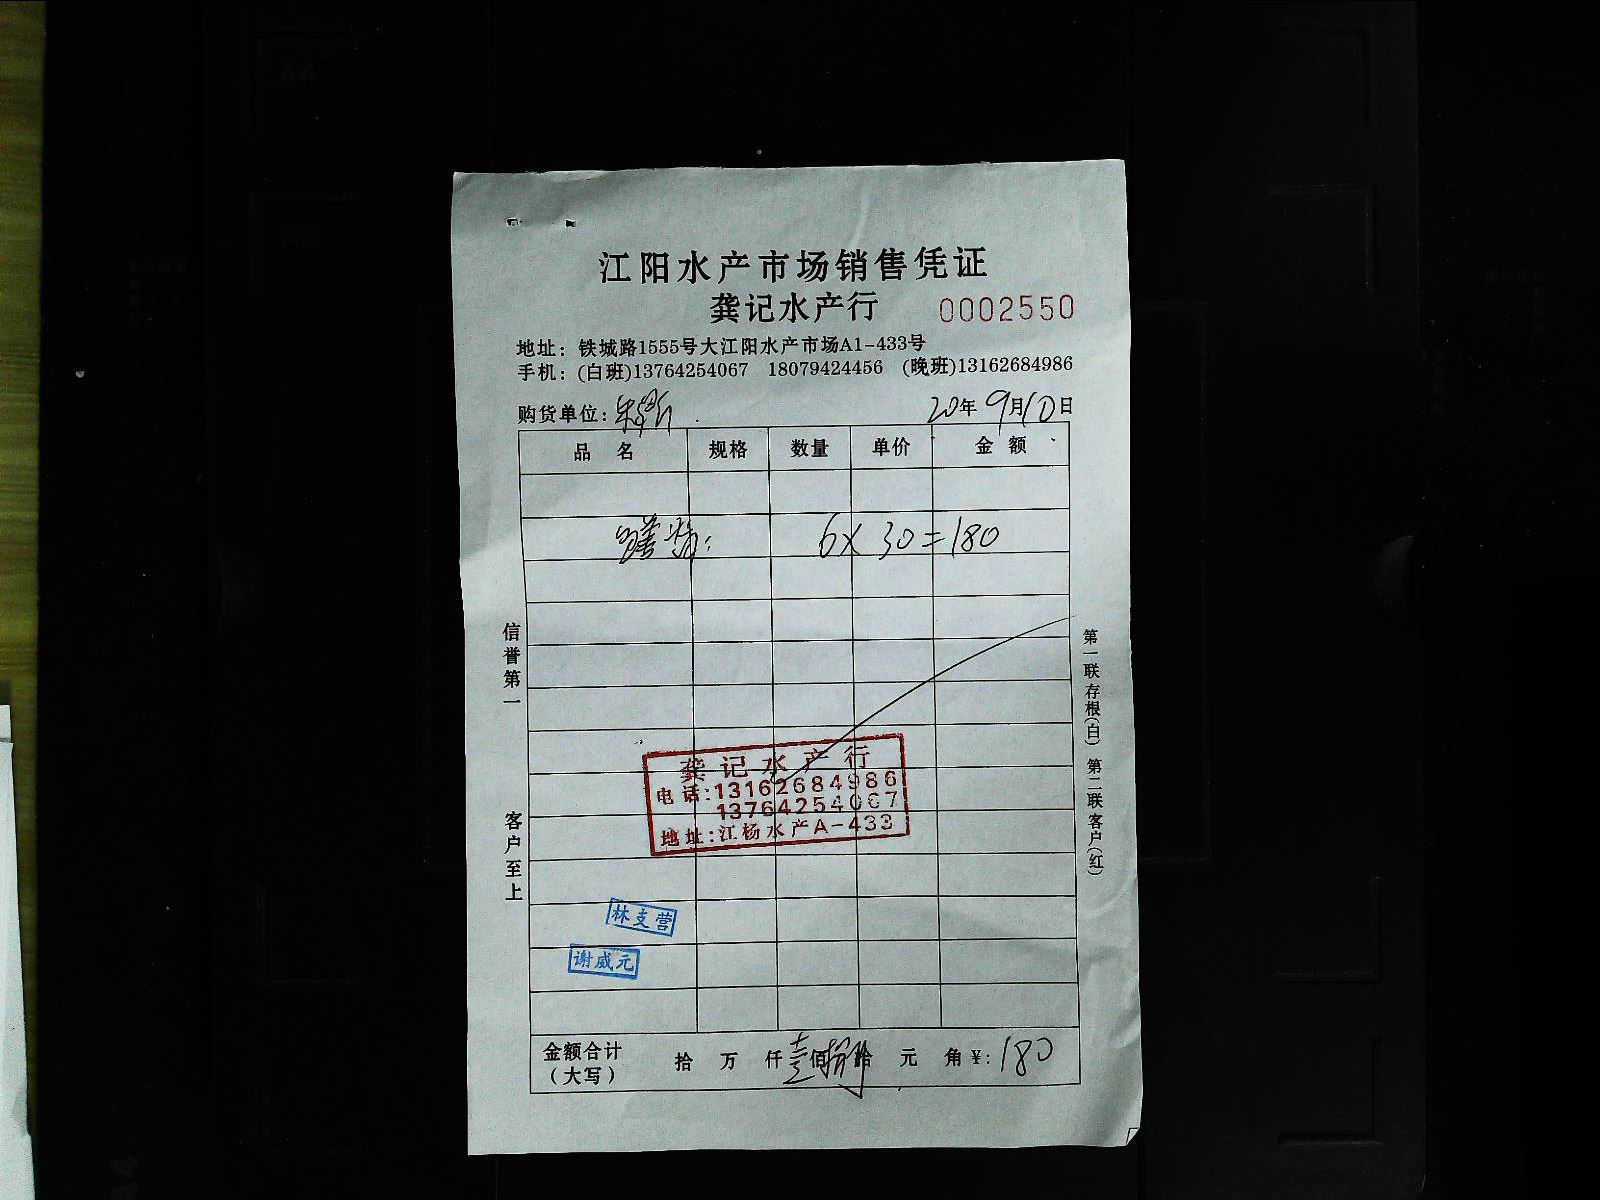 江阳水产市场销售凭证
龚记水产行 0002550
地址：铁城路1555号大江阳水产市场A1-433号
手机：(白班)13764254067 18079424456 (晚班)13162684986
购货单位： 20年9月10日
品 名 规格 数量 单价 金 额
6×30=180
信誉第一
客户至上
第一联存根(白) 第二联客户(红)
龚记水产行
电话:13162684986
13764254067
地址:江杨水产A-433
林支营
谢威元
金额合计 拾 万 仟壹佰捌拾 元 角 ¥:180
（大写）